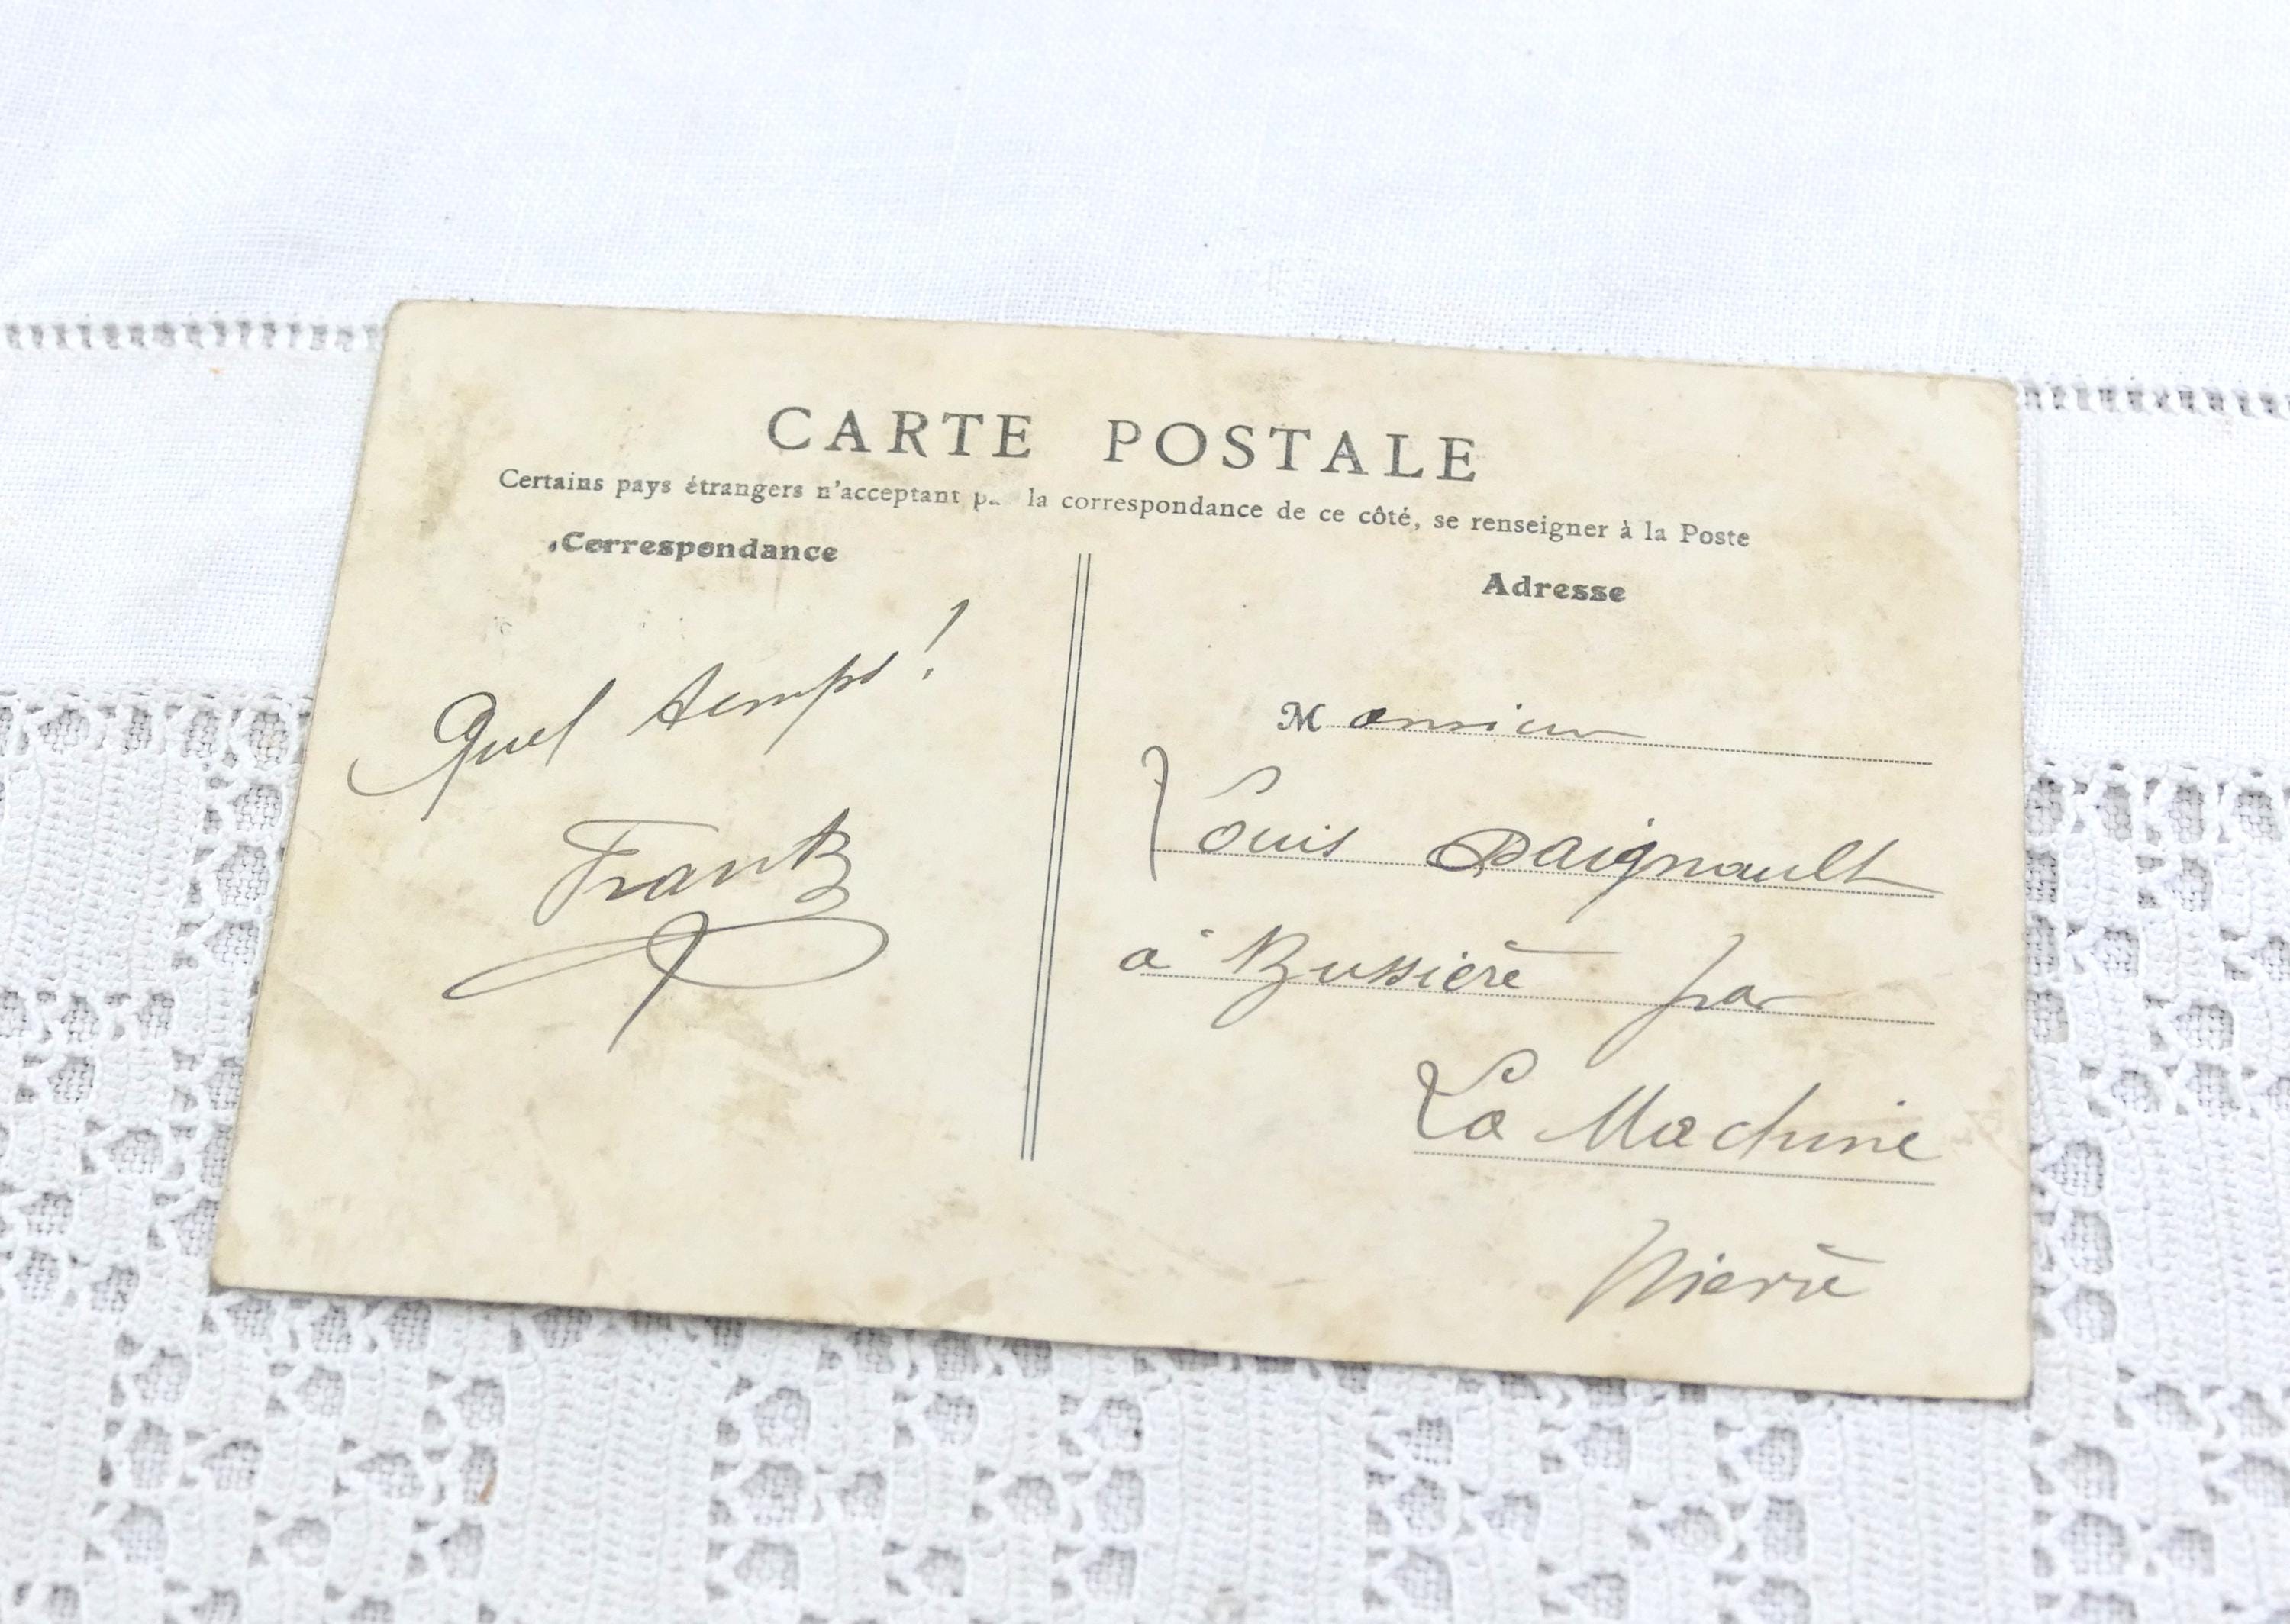 CARTE POSTALE
Certains pays étrangers n'acceptant p.. la correspondance de ce côté, se renseigner à la Poste
Correspondance
Quel temps!
Frantz
Adresse
Monsieur
Louis Daignault
à Bussière par
La Machine
Nièvre